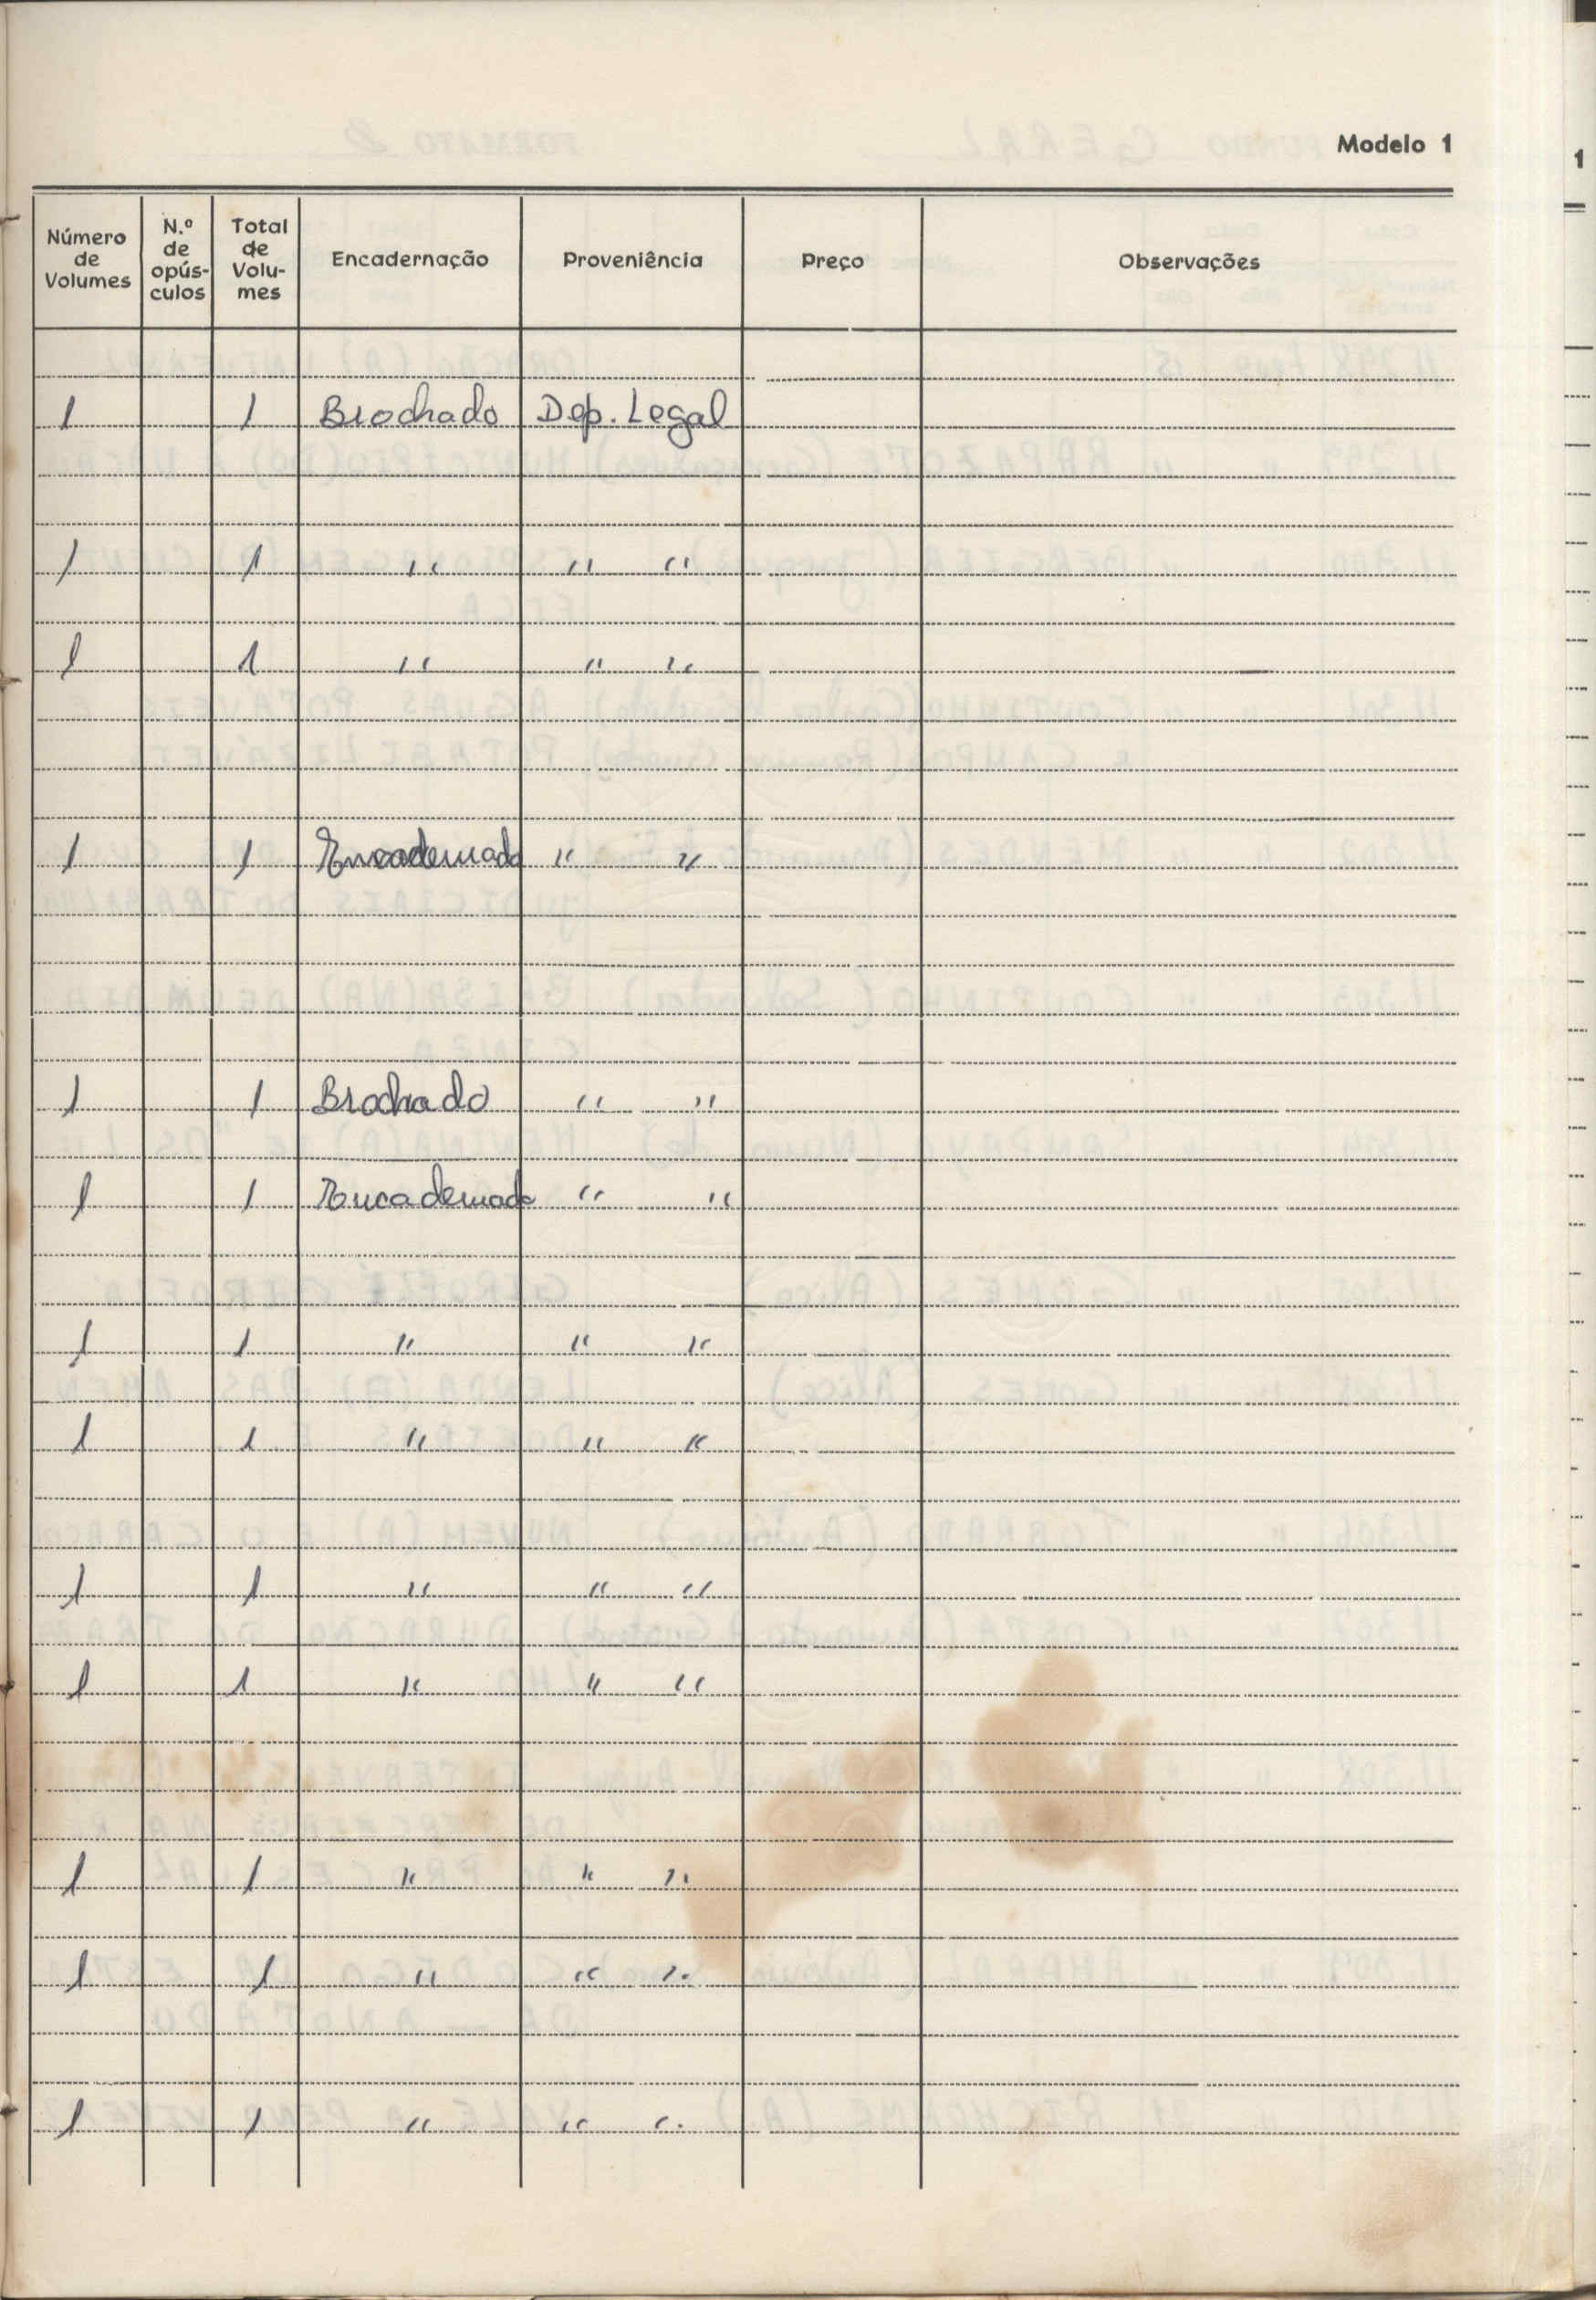 Modelo 1
1
Número de Volumes N.º de opús-culos Total de Volu-mes Encadernação Proveniência Preço Observações
1 1 Brochado Dep. Legal
1 1 " " "
1 1 " " "
1 1 Encadernado " "
1 1 Brochado " "
1 1 Encadernado " "
1 1 " " "
1 1 " " "
1 1 " " "
1 1 " " "
1 1 " " "
1 1 " " "
1 1 " " "